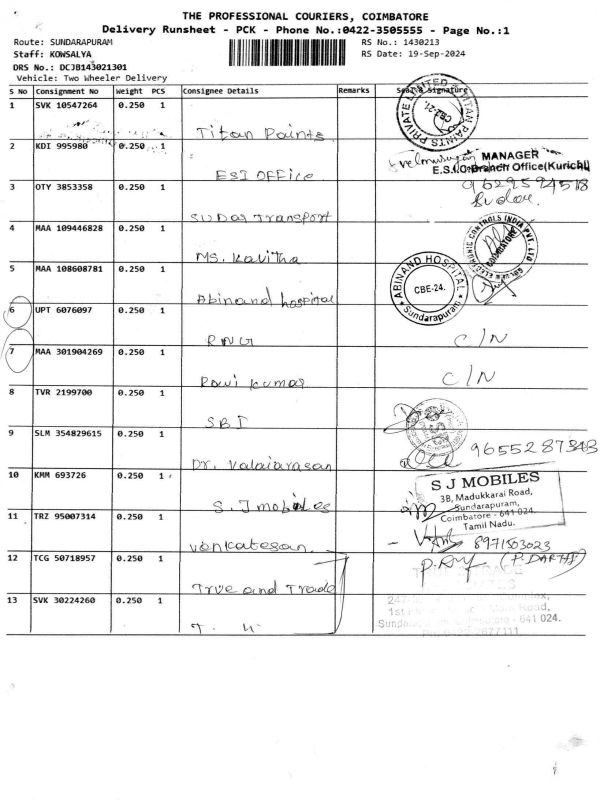 THE PROFESSIONAL COURIERS, COIMBATORE
Delivery Runsheet - PCK - Phone No.:0422-3505555 - Page No.:1
Route: SUNDARAPURAM
RS No.: 1430213
Staff: KOWSALYA
RS Date: 19-Sep-2024
DRS No.: DCJB143021301
Vehicle: Two Wheeler Delivery
S No Consignment No Weight PCS Consignee Details Remarks Seal & Signature
1 SVK 10547264 0.250 1
Titan Paints
2 KDI 995980 0.250 1
ESI OFFice
MANAGER
E.S.I.C.Branch Office(Kurichi)
3 OTY 3853358 0.250 1
9629594518
Sudar.
SUDAR Transport
4 MAA 109446828 0.250 1
COIMBATORE
MS. Kavitha
5 MAA 108608781 0.250 1
ABINAND HOSPITAL
CBE-24.
Sundarapuram
Abinand hospital
6 UPT 6076097 0.250 1
RNG
C/N
7 MAA 301904269 0.250 1
Ravi Kumar
C/N
8 TVR 2199700 0.250 1
SBI
9 SLM 354829615 0.250 1
9655287343
Dr. Valaiarasan
10 KMM 693726 0.250 1
S.J mobiles
S J MOBILES
3B, Madukkarai Road,
Sundarapuram,
Coimbatore - 641 024.
Tamil Nadu.
11 TRZ 95007314 0.250 1
venkatesan
8971503023
12 TCG 50718957 0.250 1
(P. PARTHI)
True and Trade
13 SVK 30224260 0.250 1
T. H
641 024.